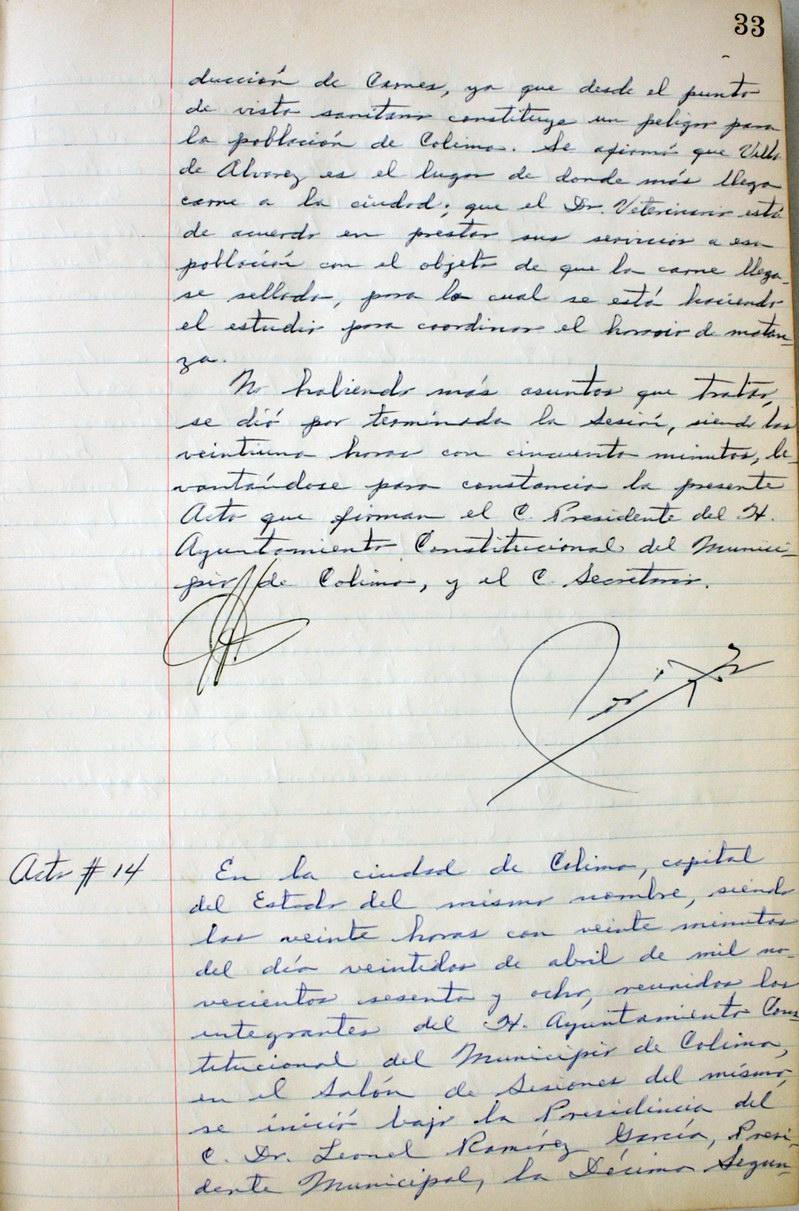 33
ducción de Carnes, ya que desde el punto
de vista sanitario constituye un peligro para
la población de Colima. Se afirmó que Villa
de Alvarez es el lugar de donde más llega
carne a la ciudad; que el Dr. Veterinario está
de acuerdo en prestar sus servicios a esa
población con el objeto de que la carne llega-
se sellada, para lo cual se está haciendo
el estudio para coordinar el horario de matan-
za.
No habiendo más asuntos que tratar,
se dió por terminada la Sesión, siendo las
veintiuna horas con cincuenta minutos, le-
vantándose para constancia la presente
Acta que firman el C. Presidente del H.
Ayuntamiento Constitucional del Munici-
pio de Colima, y el C. Secretario.
Acta # 14
En la ciudad de Colima, capital
del Estado del mismo nombre, siendo
las veinte horas con veinte minutos
del día veintidos de abril de mil no-
vecientos sesenta y ocho, reunidos los
integrantes del H. Ayuntamiento Cons-
titucional del Municipio de Colima,
en el Salón de Sesiones del mismo,
se inició bajo la Presidencia del
C. Dr. Leonel Ramírez García, Presi-
dente Municipal, la Décima Segun-